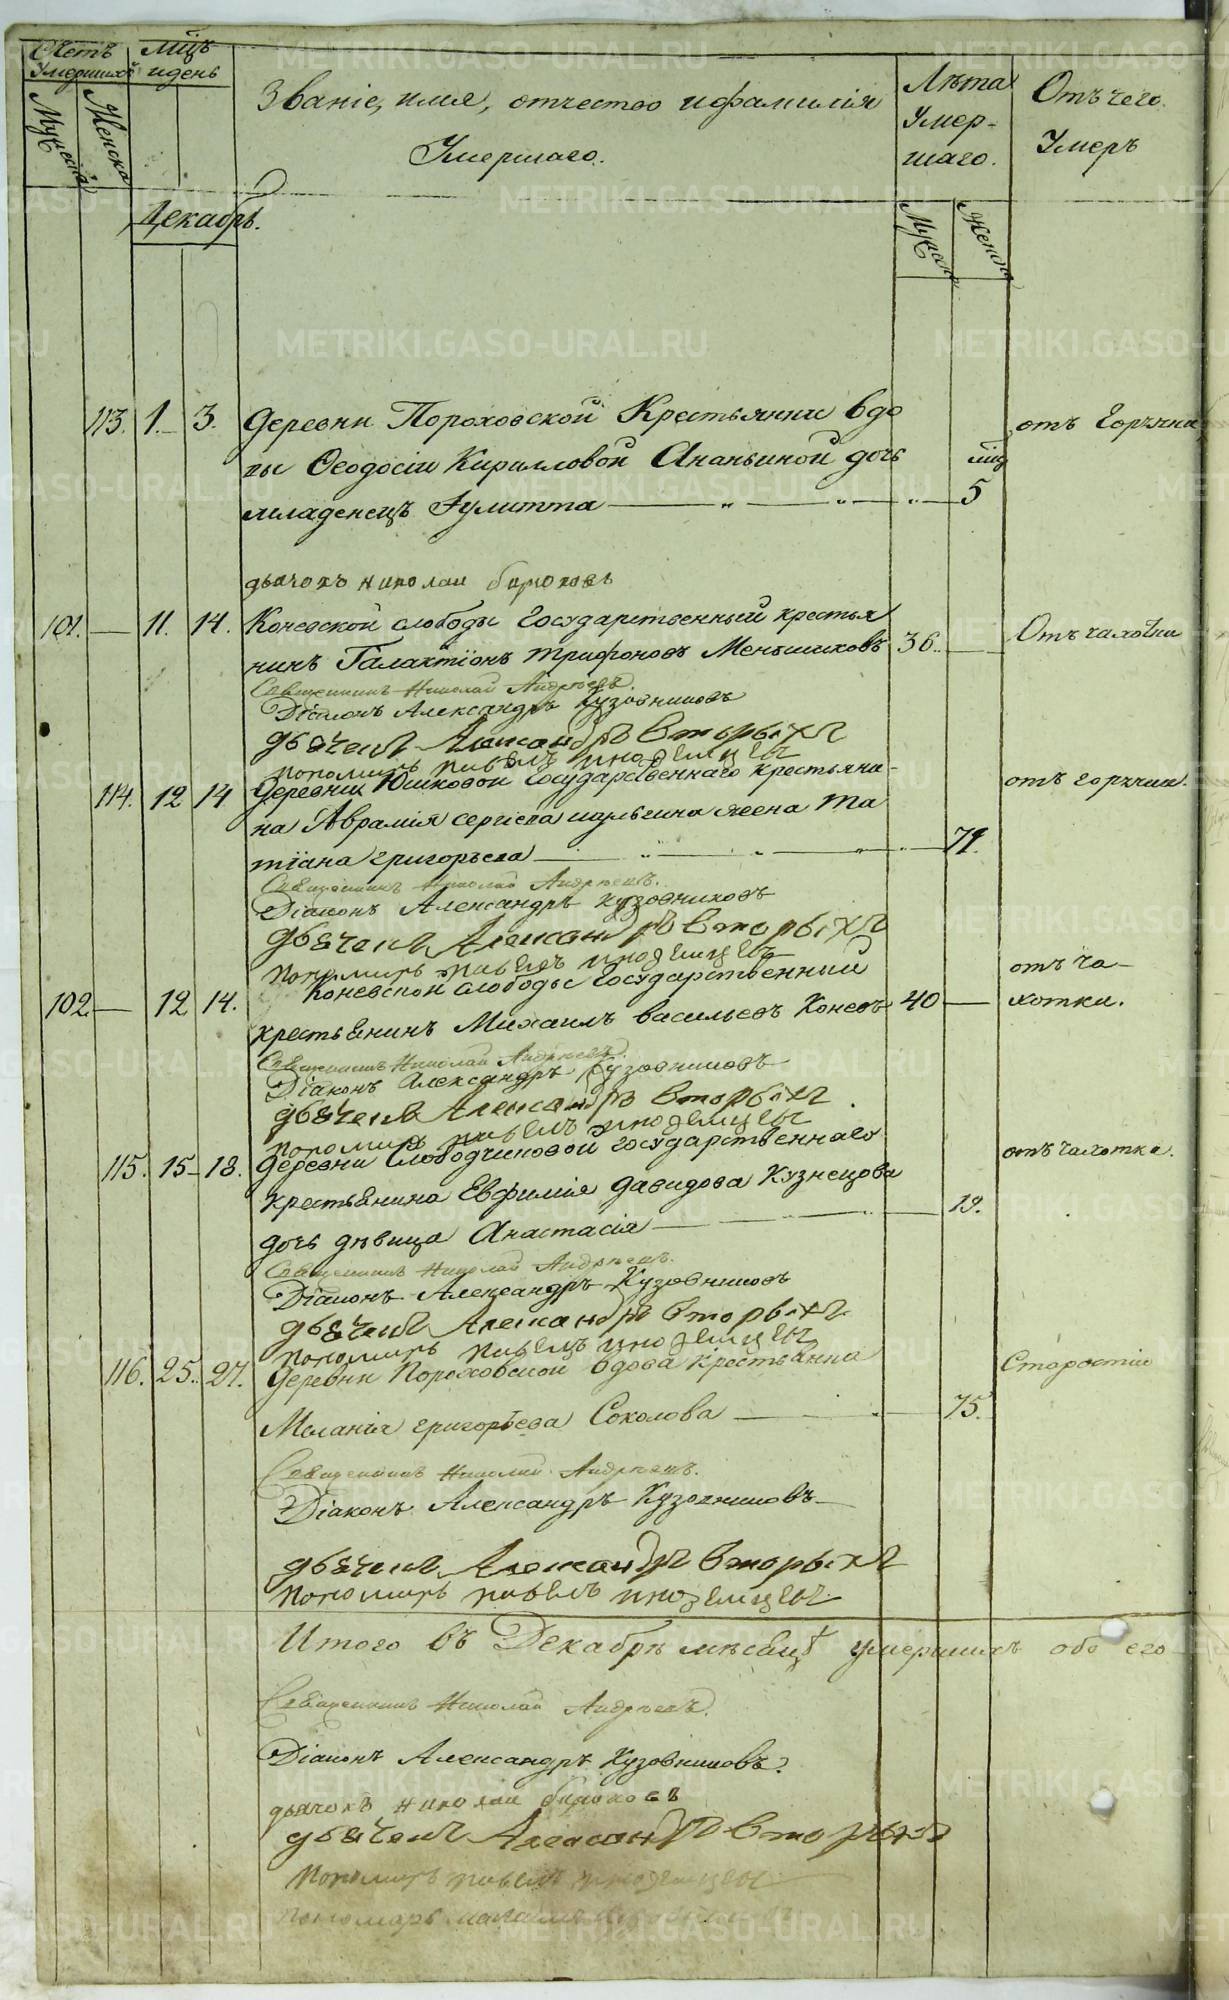 Счетъ Умершихъ
Мцъ и день
Званіе, имя, отчество и фамилія
Умершаго.
Лѣта
Умер-
шаго.
Отъ чего
Умеръ
Мужеска
Женска
Декабрь.
Мужеска
Женска
113. 1. 3. Деревни Пороховской Крестьянки вдо
отъ Горячки
вы Ѳеодосіи Кирилловой Ананьиной дочь
младенецъ Іулитта 5
дьячокъ Николай Бирюковъ
101. 11. 14. Коневской слободы Государственный крестья
нинъ Галактіонъ Трифоновъ Меньшиковъ 36.
Отъ чахотки
Священникъ Николай Андреевъ.
Діаконъ Александръ Кузовниковъ
дьячекъ Александръ Вторыхъ
пономарь Павелъ Иноземцевъ
114. 12 14 Деревни Юшковой Государственнаго крестьяни-
отъ горячки.
на Аврамія Сергіева жена Та
тіана Григорьева 71.
Священникъ Николай Андреевъ.
Діаконъ Александръ Кузовниковъ
дьячекъ Александръ Вторыхъ
пономарь Павелъ Иноземцевъ
102 12 14. Коневской слободы Государственный
отъ ча-
крестьянинъ Михаилъ Васильевъ Коневъ 40
хотки.
Священникъ Николай Андреевъ.
Діаконъ Александръ Кузовниковъ
дьячекъ Александръ Вторыхъ.
пономарь Павелъ Иноземцевъ
115. 15 18. Деревни Слободчиковой Государственнаго
отъ чахотки.
крестьянина Евфимія Давидова Кузнецова
дочь дѣвица Анастасія 19.
Священникъ Николай Андреевъ.
Діаконъ Александръ Кузовниковъ
дьячекъ Александръ Вторыхъ
пономарь Павелъ Иноземцевъ
116. 25. 27. Деревни Пороховской вдова крестьянка
Старостію
Меланія Григорьева Соколова 75.
Священникъ Николай Андреевъ.
Діаконъ Александръ Кузовниковъ
дьячекъ Александръ Вторыхъ
пономарь Павелъ Иноземцевъ.
Итого въ Декабрѣ мѣсяцѣ умершихъ обоего
Священникъ Николай Андреевъ.
Діаконъ Александръ Кузовниковъ.
дьячокъ Николай Бирюковъ
дьячекъ Александръ Вторыхъ
пономарь Павелъ Иноземцевъ
пономарь
METRIKI.GASO-URAL.RU